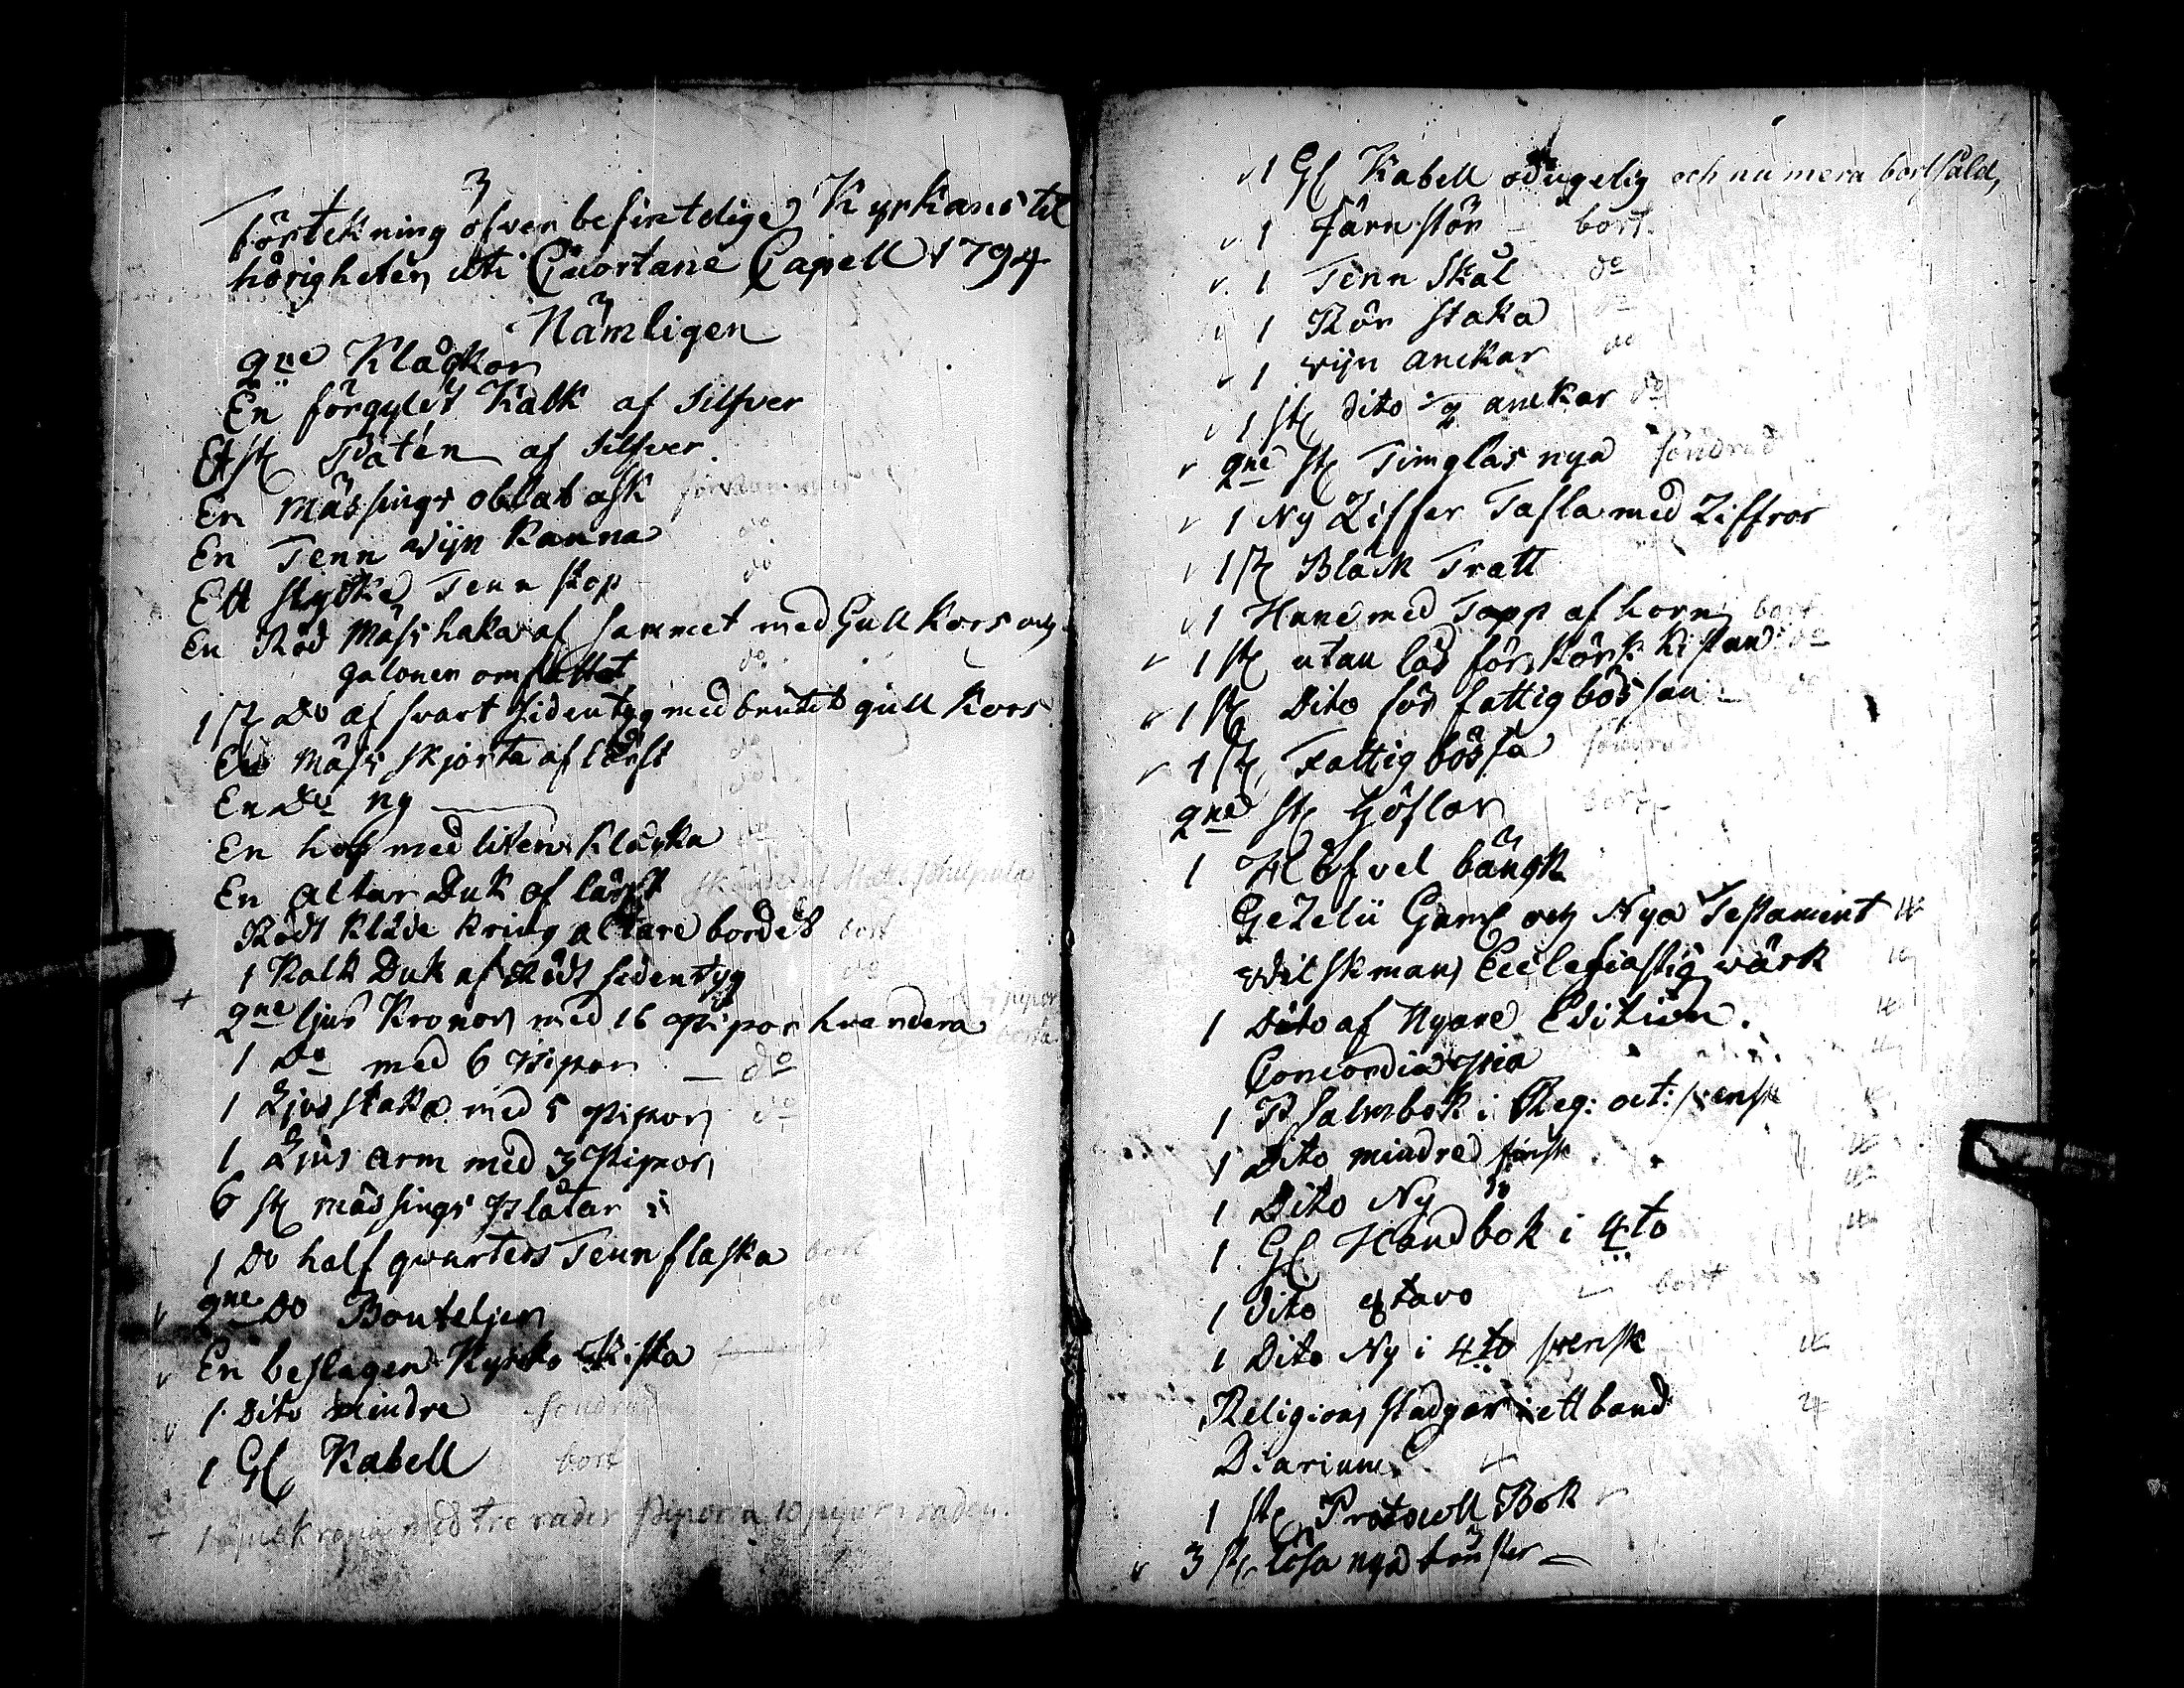 Förtekning öfver befinteliga Kyrkans til
hörigheter uti Cuortane Capell 1794
Nämligen
2ne Klåckor
En förgylt Kalk af Silfver
Et st Patén af Silfver.
En Mässings oblat ask
En Tenn vijn Kanna do
Ett stycke Tenn stop do
En Röd Mäss haka af sammet med Gull Kors och
galoner omsattat do
1 st Do af svart Sidentyg med brutit gull Kors
En Mäss skjorta af lärft do
En Do ny
En hof med liten Klåcka do
En altar Duk af lärft
Rödt Kläde kring altare bordet bort
1 Kalk Duk af Rödt sidentyg do
+ 2ne ljus Kronor med 16 pipor hvardera
1 Do med 6 Pipor do
1 Ljus staka med 5 pipor do
1 Ljus arm med 3 Pipor
6 st mässings Plåtar
1 Do half qvarters Tenn flaska bort
v 2ne Do Bouteljer do
v En beslagen Kyrko Kista
v 1 Dito mindre söndrad
1 Gl Kabell bort
+ 1 ljuskrona med tre rader pipor a 10 pipor i raden.
v 1 Gl Kabell odugelig och nu mera bortsåld,
v 1 Järn stör bort
v 1 Tenn Skål do
v 1 Rör staka do
v 1 vijn anckar do
v 1 st dito 1/2 anckar do
v 2ne st Timglas nya söndrad
v 1 Ny Ziffer Tafla med Ziffror
v 1 st Bläck Tratt
v 1 Hane med Tapp af horn bort
v 1 st utan lås för Körk Kistan do
v 1 st Dito för fattig bössan do
v 1 st Fattig bössa söndrad
2ne st Höflar bort
1 Höfvel bängk
Gezelii Gaml och Nya Testament
Wilskmans Ecclesiastig värk
1 Dito af Nyare Edition.
Concordia pia
1 Psalmbok i Reg: oct: svensk
1 Dito mindre finsk
1 Dito Ny
1 Gl Handbok i 4to
1 Dito octavo bort
1 Dito Ny i 4to svensk
Religions stadgar i ett band
Diarium
1 st Protocoll Bok
v 3 st lösa nya fönster